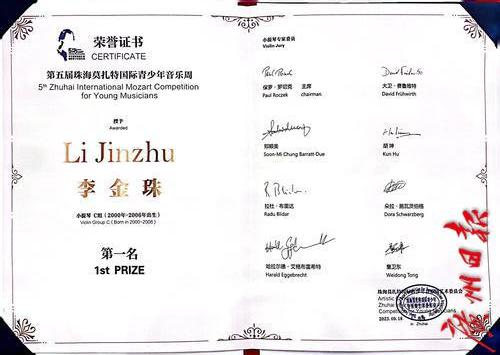 荣誉证书
CERTIFICATE
第五届珠海莫扎特国际青少年音乐周
5th Zhuhai International Mozart Competition
for Young Musicians
授予
Awarded
Li Jinzhu
李金珠
小提琴 C组(2000年-2006年出生)
Violin Group C (Born in 2000-2006)
第一名
1st PRIZE
小提琴专家委员
Violin Jury
保罗·罗切克 主席
Paul Roczek chairman
大卫·费鲁维特
David Frühwirth
郑顺美
Soon-Mi Chung Barratt-Due
胡坤
Kun Hu
拉杜·布雷达
Radu Blidar
朵拉·施瓦茨伯格
Dora Schwarzberg
哈拉尔德·艾格布雷希特
Harald Eggebrecht
童卫东
Weidong Tong
2023.09.18
in Zhuhai